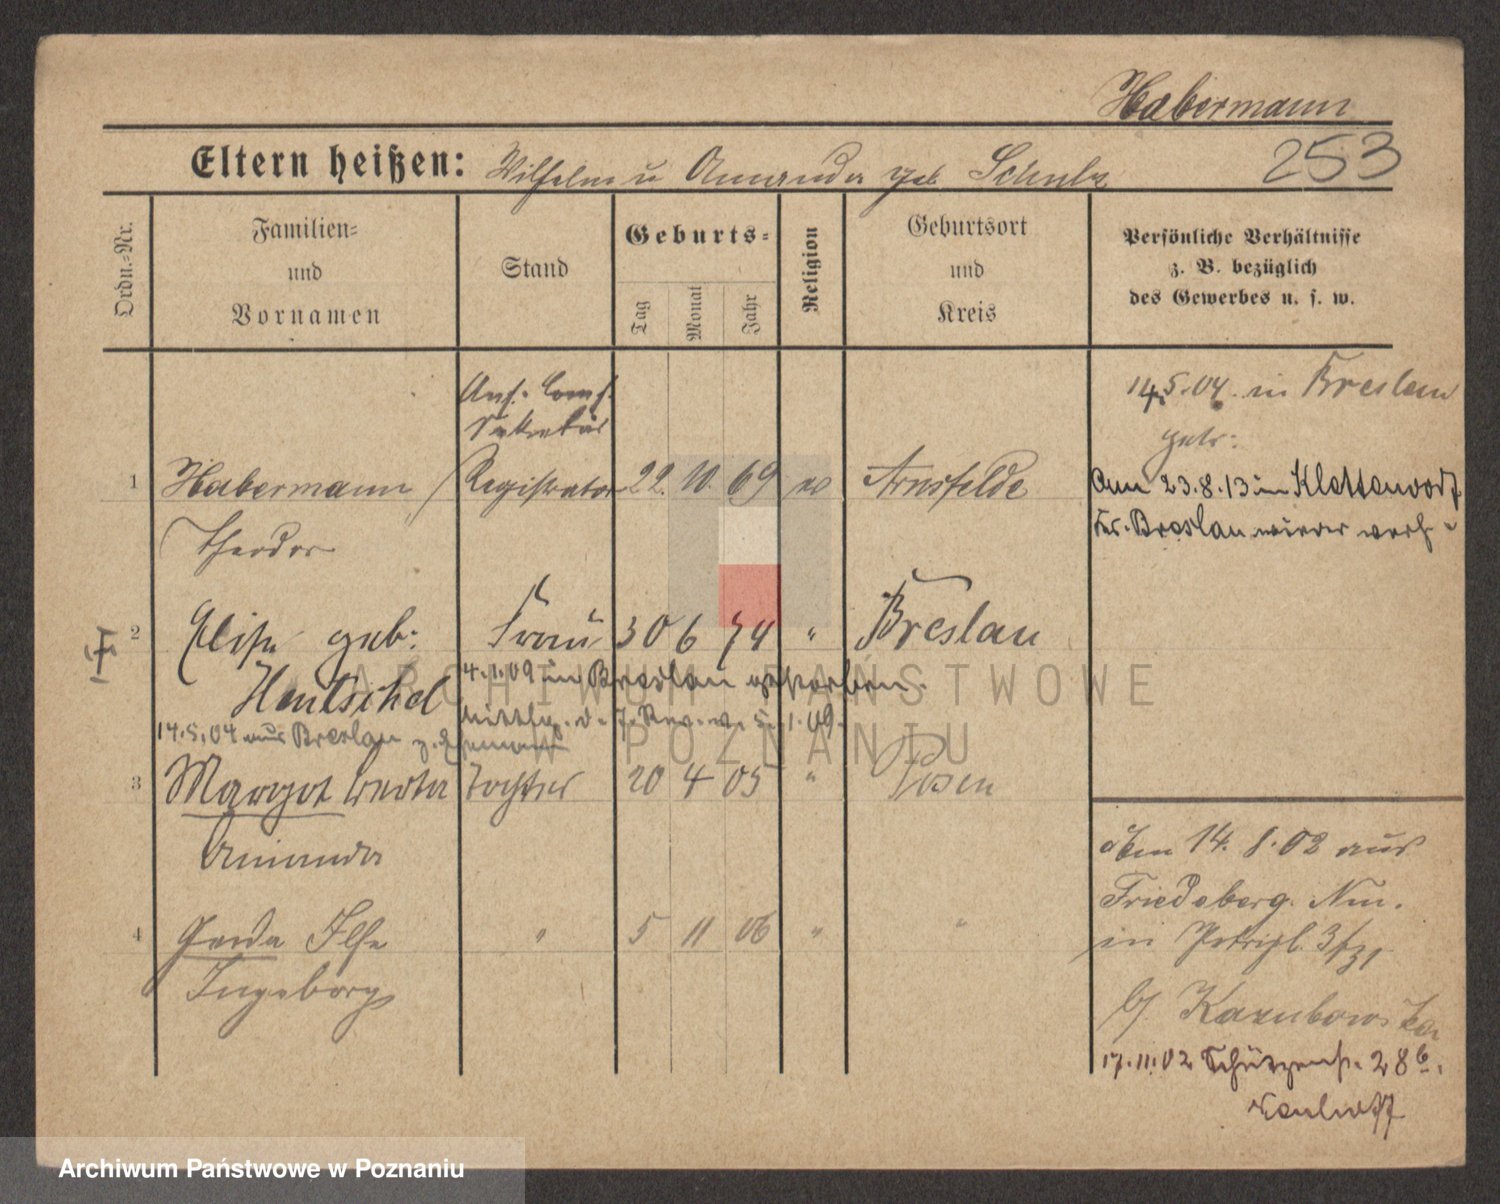 Habermann
253
Eltern heißen: Wilhelm u Amanda geb Schulz
Ordn.-Nr.
Familien-
und
Vornamen
Stand
Geburts-
Tag
Monat
Jahr
Religion
Geburtsort
und
Kreis
Persönliche Verhältnisse
z. B. bezüglich
des Gewerbes u. s. w.
14.5.04. in Breslau
getr:
Am 23.8.13 in Klettendorf
Kr. Breslau wieder verh
Sekretär
1 Habermann Registrator 22. 10. 69 ev Arnsfelde
Theodor
2 Elise geb: Frau 30 6 74 " Breslau
Hentschel
4.1.09 in Breslau gestorben.
14.5.04 aus Breslau z. Ehemann
3 Margot Berta Tochter 20 4 05 " Posen
Amanda
4 Gerda Ilse " 5 11 06 " "
Ingeborg
Am 14. 8. 02 aus
Friedeberg Nm.
in Petripl. 3
b/ Kazubowska
17.11.02 Schützenstr. 28b.
ARCHIWUM PAŃSTWOWE
W POZNANIU
Archiwum Państwowe w Poznaniu